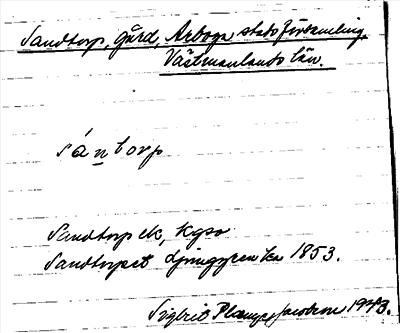 Sandtorp, gård, Arboga stadsförsamling,
Västmanlands län.
sántorp
Sandtorp ek, Kgso
Sandtorpet Ljunggren ka 1853.
Sigbrit Plænge Jacobson 1943.